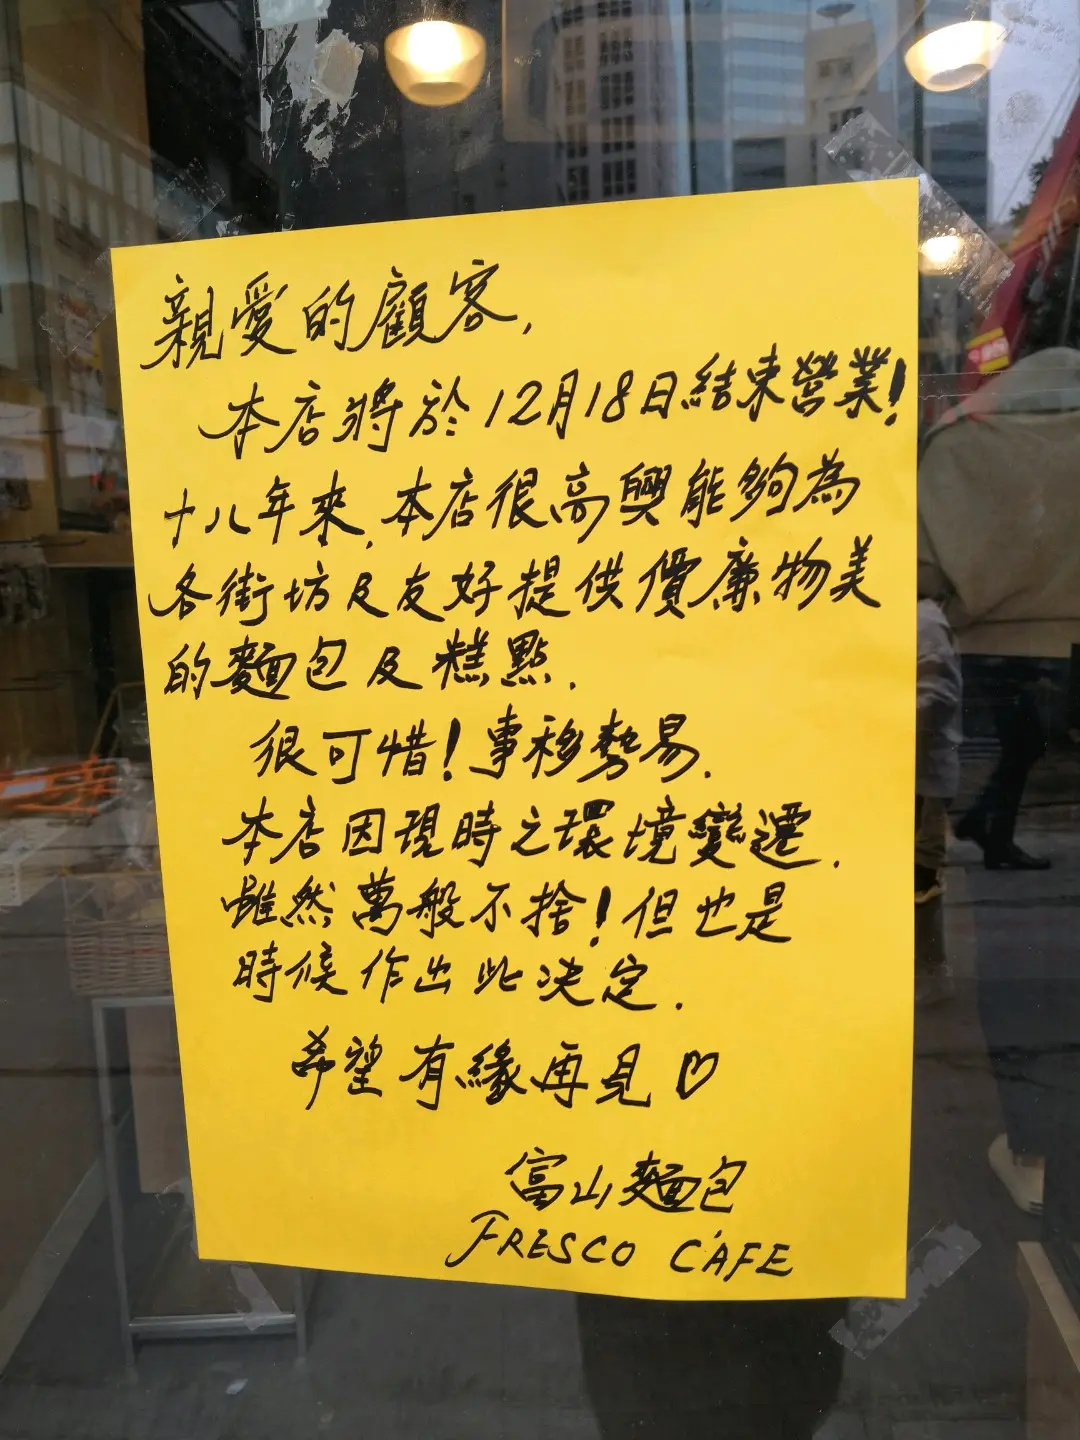 親愛的顧客,
本店將於12月18日結束營業!
十八年來,本店很高興能夠為
各街坊及友好提供價廉物美
的麵包及糕點.
很可惜!事移勢易.
本店因現時之環境變遷.
雖然萬般不捨!但也是
時候作出此決定.
希望有緣再見♡
富山麵包
FRESCO CAFE